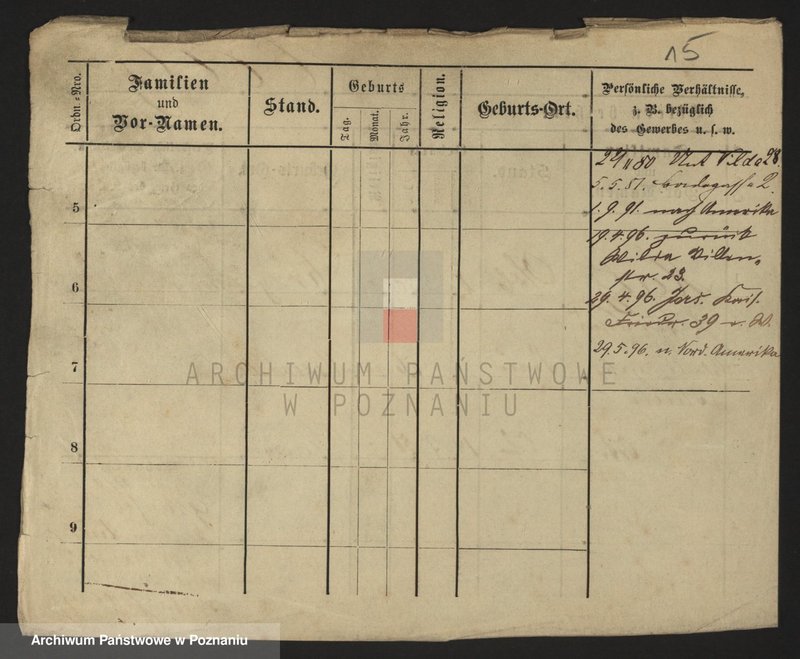 15
Ordn.-Nro.
Familien
und
Vor-Namen.
Stand.
Geburts
Tag.
Monat.
Jahr.
Religion.
Geburts-Ort.
Persönliche Verhältnisse,
z. B. bezüglich
des Gewerbes u. s. w.
5
6
7
8
9
28
5.5.81.
1.9.91. nach Amerika
19.4.96. zurück
Wilda
str. 23
29.4.96. Jers.
39
29.5.96. n. Nord. Amerika
ARCHIWUM PAŃSTWOWE
W POZNANIU
Archiwum Państwowe w Poznaniu